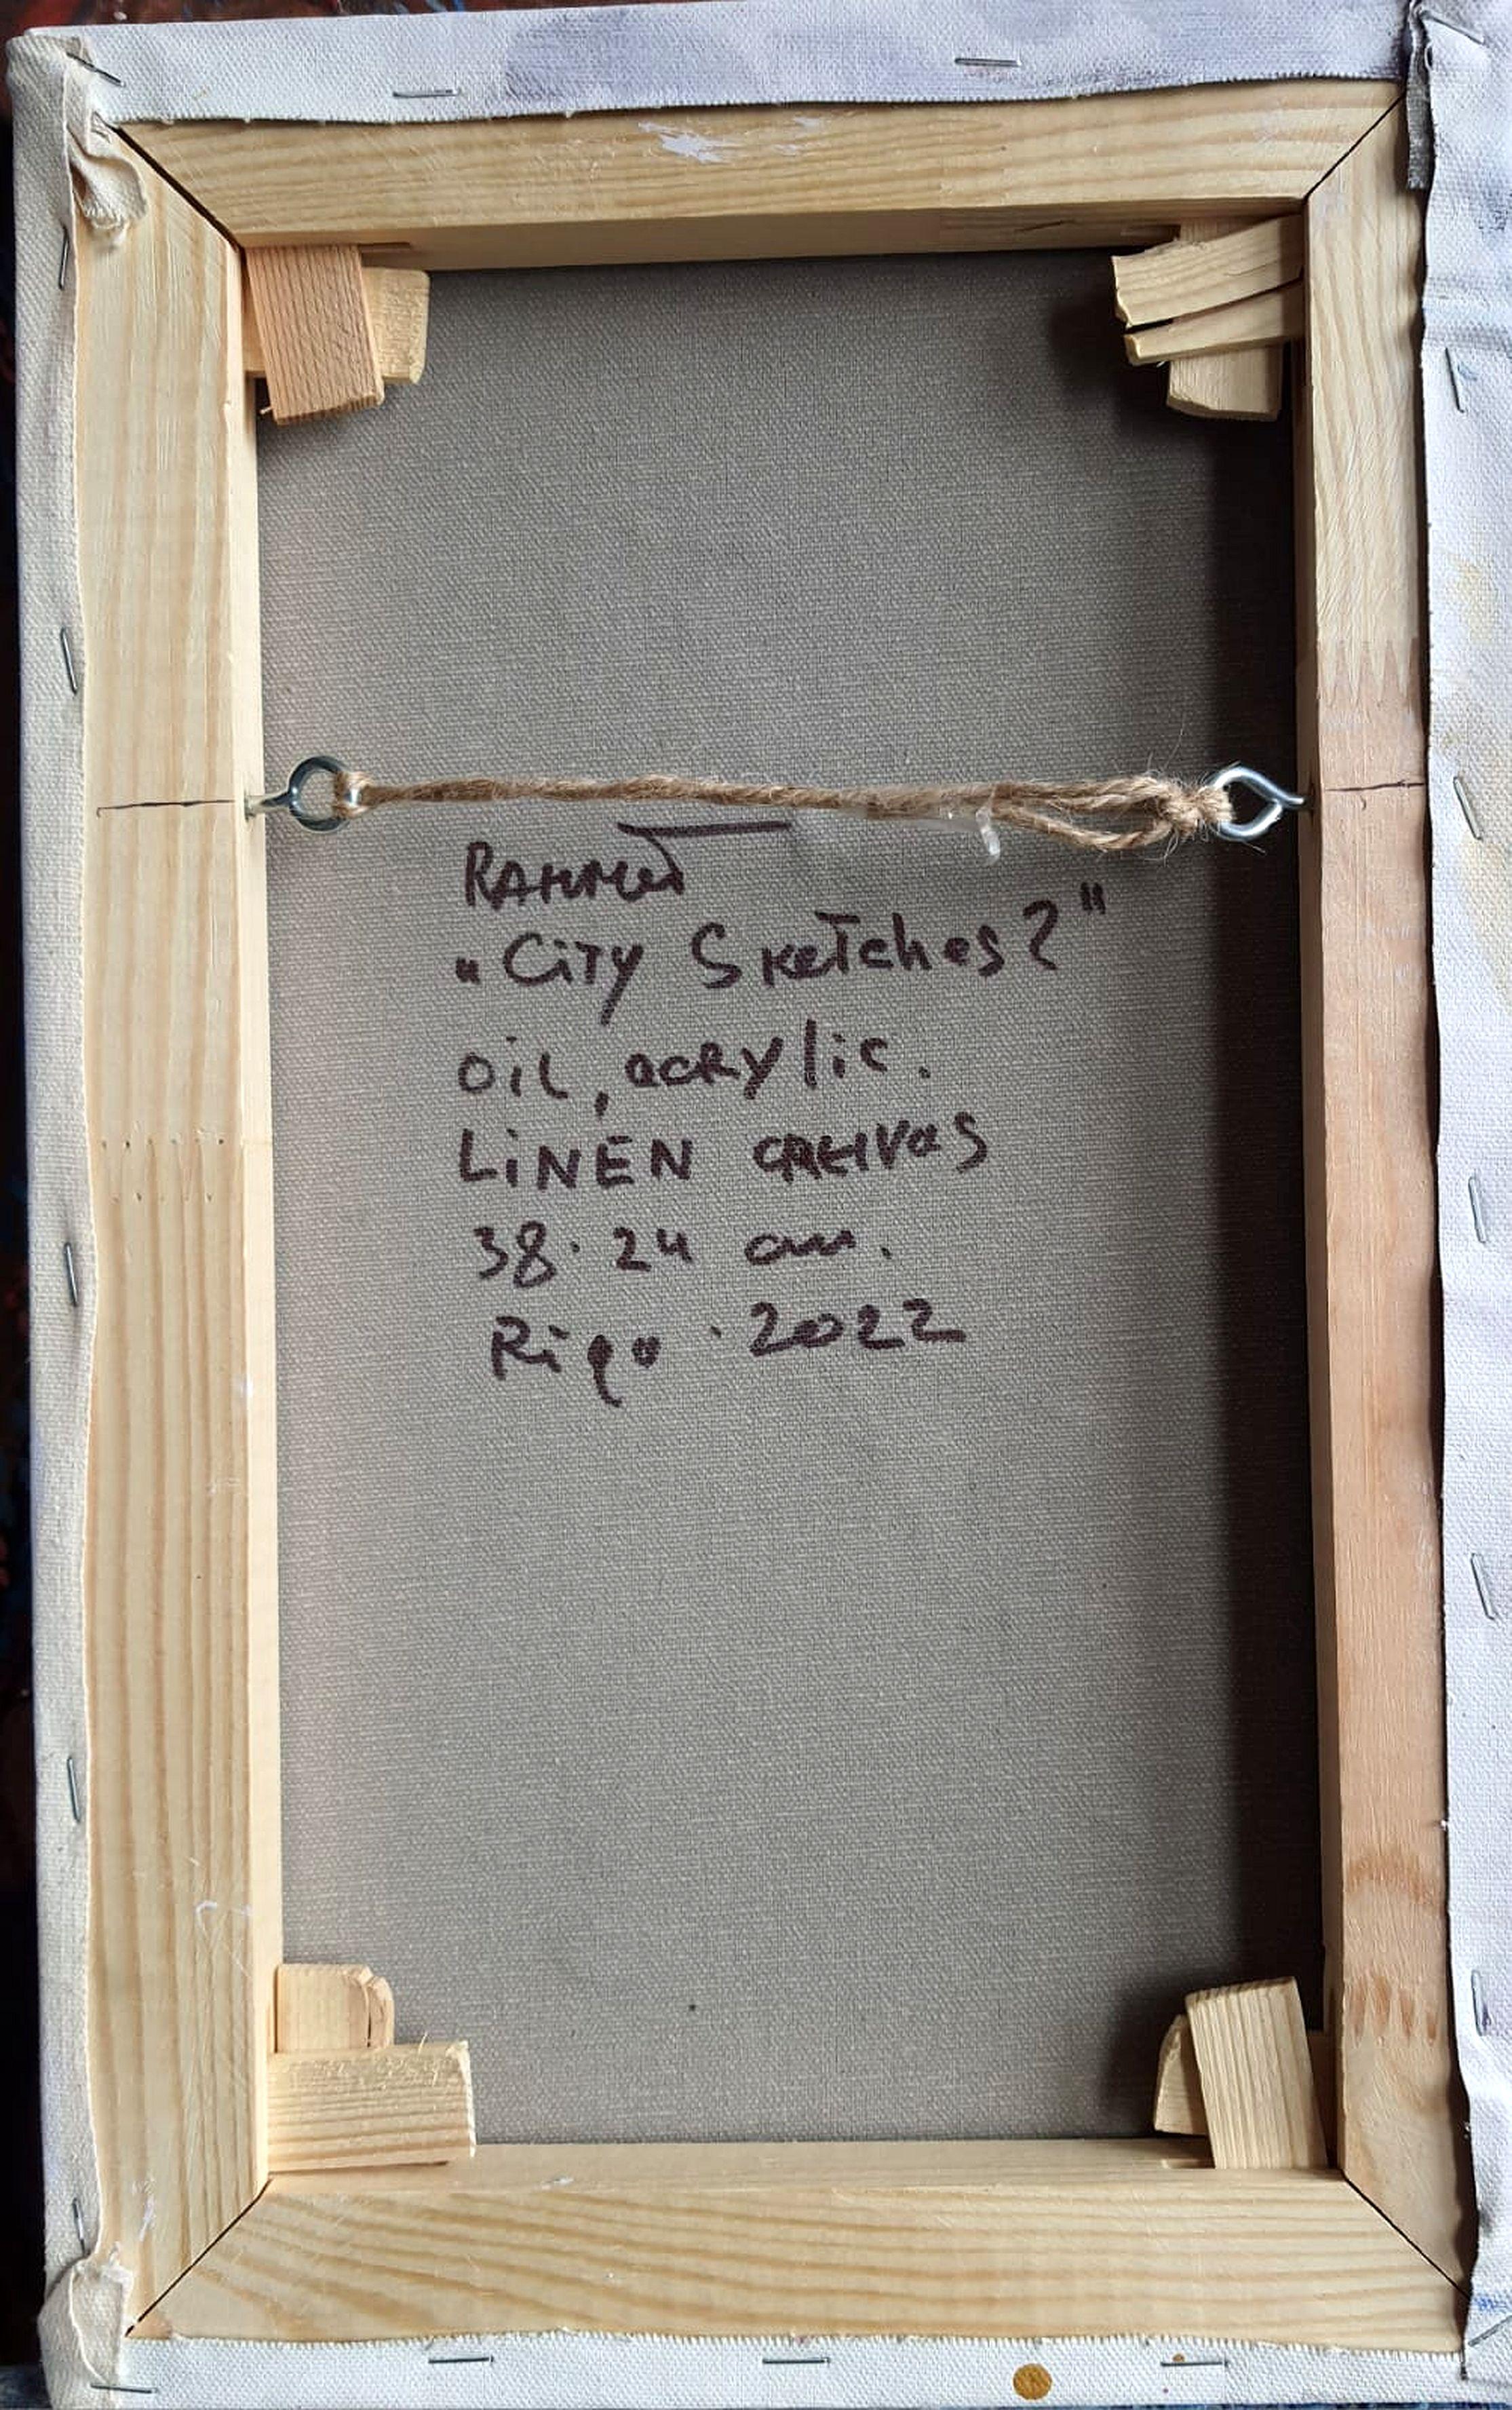 „City Sketches 2"
oil, acrylic.
LiNEN canvas
38·24 cm.
Riga · 2022